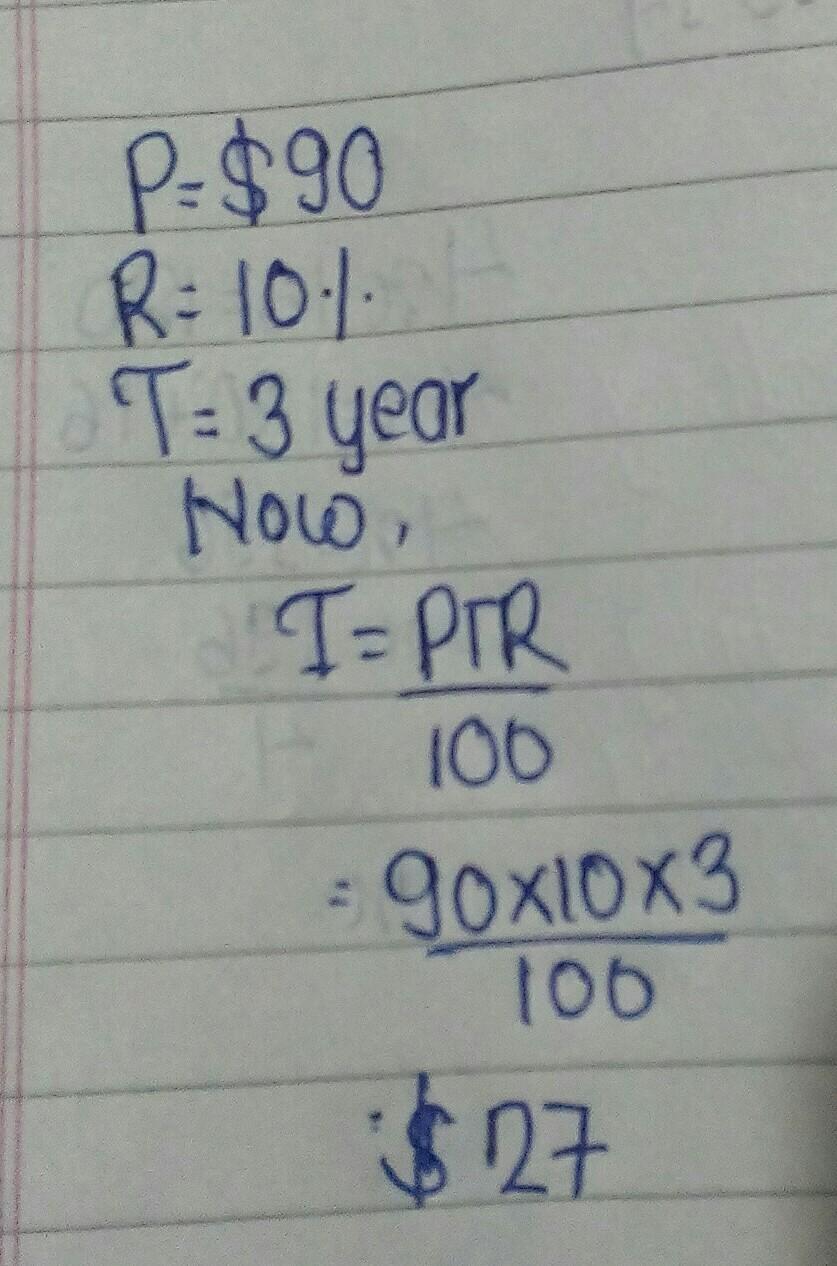 P=$90
R=10%
T=3 year
Now,
I=PTR
100
=90×10×3
100
:$27